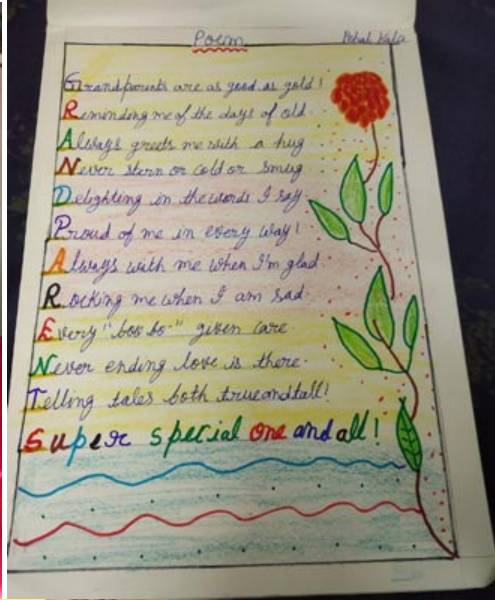 Poem
Grandparents are as good as gold!
Reminding me of the days of old.
Always greets me with a hug
Never stern or cold or smug
Delighting in the words I say
Proud of me in every way!
Always with me when I'm glad
Rocking me when I am sad
Every "boo bo-" given care
Never ending love is there
Telling tales both true and tall!
Super special one and all!